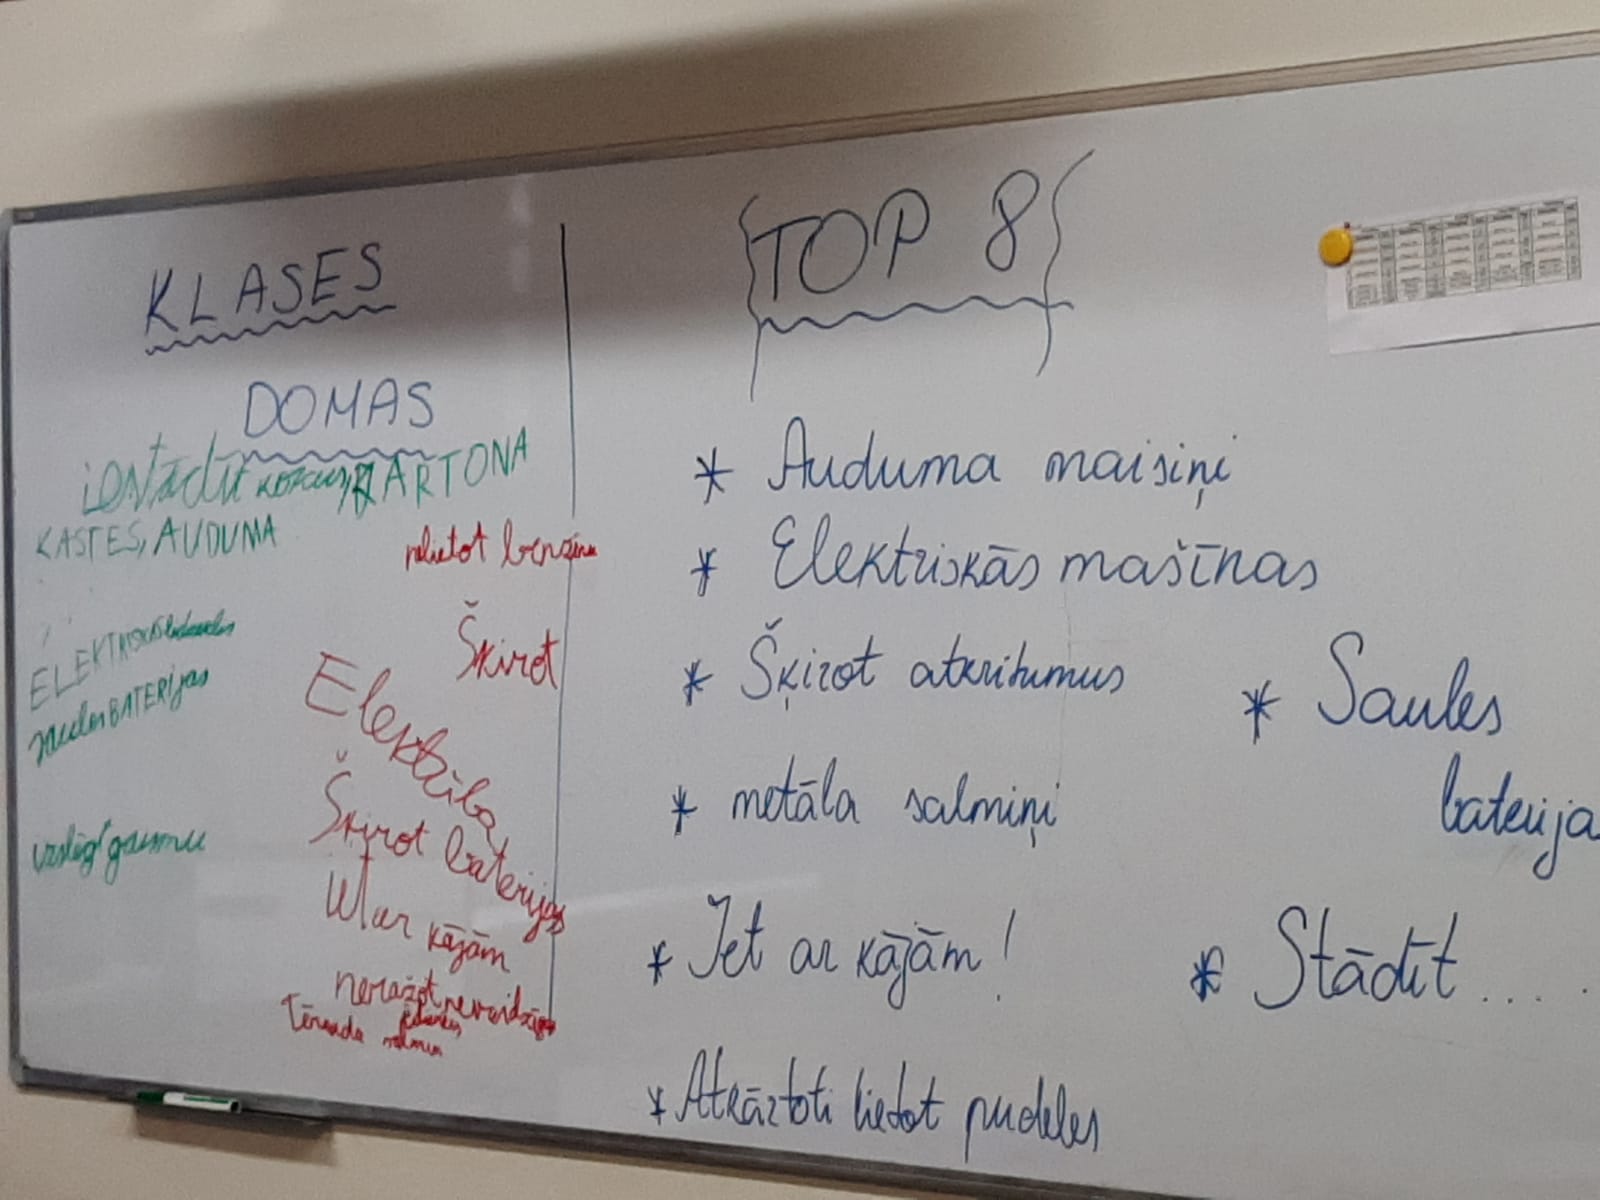 KLASES
DOMAS
iestādīt kokus, KARTONA
KASTES, AUDUMA
ELEKTRISKĀS
saules BATERIjas
izslēgt gaismu
nelietot benzīnu
Škirot
Elektrība
Škirot baterijas
Iet ar kājām
neražot nevaidzīgu
Tērauda
TOP 8
* Auduma maisiņi
* Elektriskās mašīnas
* Šķirot atkritumus
* metāla salmiņi
* Iet ar kājām!
* Atkārtoti lietot pudeles
* Saules
baterija
* Stādīt.....